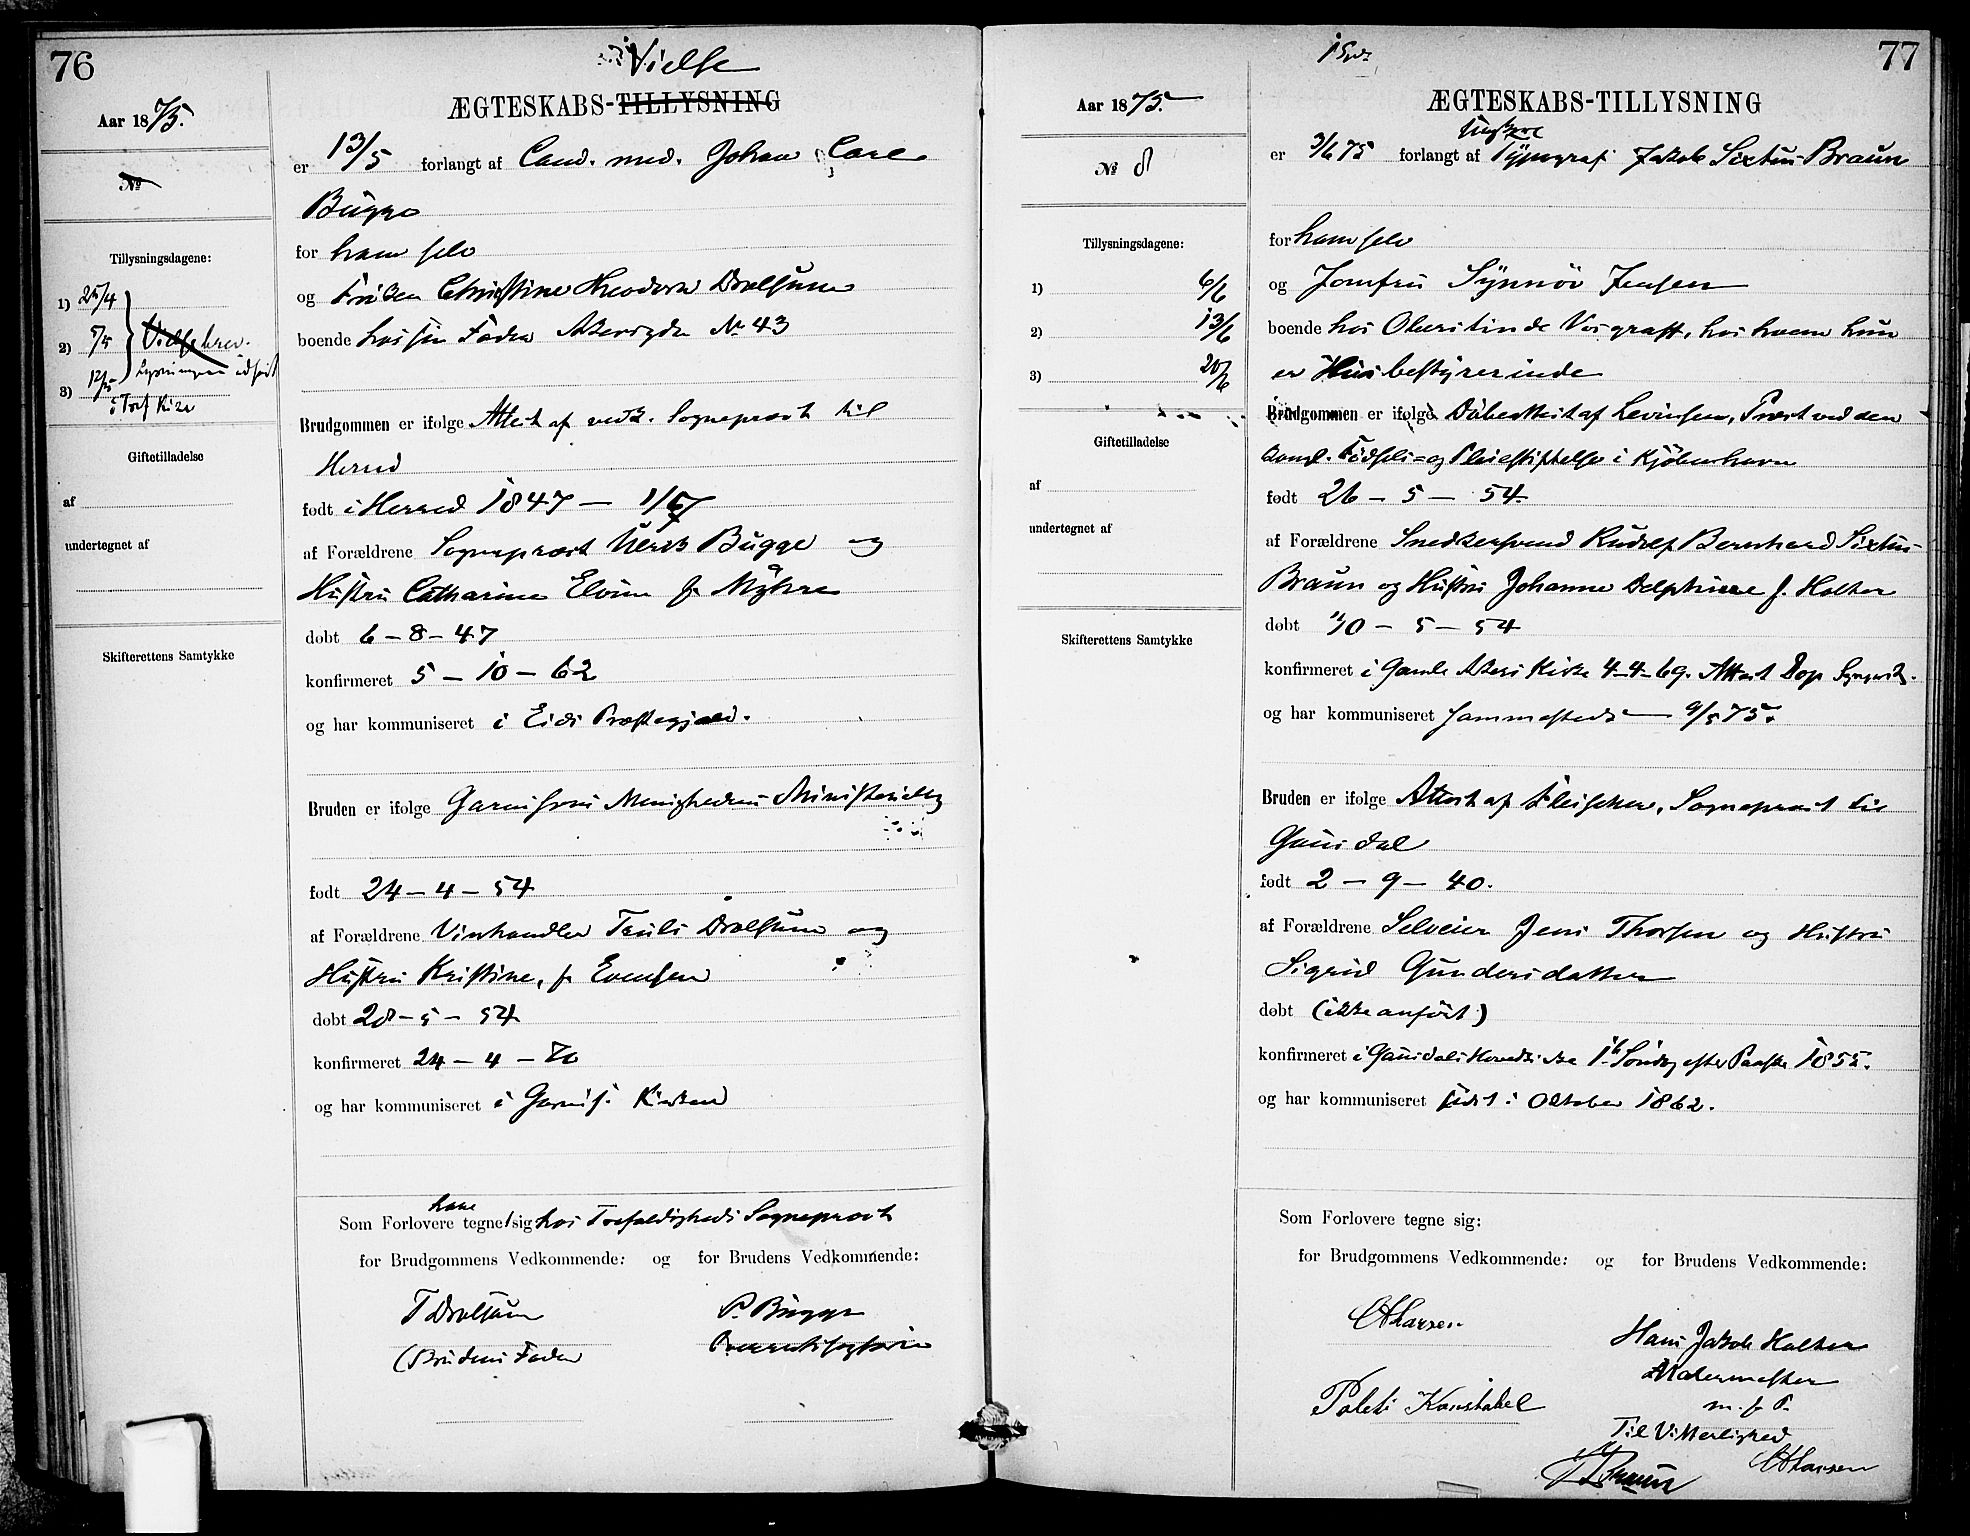 76
Vielse
Aar 1875.
ÆGTESKABS-TILLYSNING
er 13/5 forlangt af Cand. med. Johan Carl
Bugge
№
for ham selv
Tillysningsdagene:
og Frøken Christine Theodora Dælsum
1) 25/4
boende hos sin Fader Akersgdn № 43
2) 5/5 Vielsebrev.
Lysningen udført
3) 12/5
i Tref Kirke
Brudgommen er ifolge Attest af vedk. Sognepræst til
Herred
Giftetilladelse
født i Herred 1847 —
af
af Forældrene Sognepræst Bugge og
undertegnet af
Hustru Catharine Elvine f. Myhre
døbt 6 – 8 – 47
Skifterettens Samtykke
konfirmeret 5 – 10 – 62
og har kommuniseret i Eids Præstegjæld.
Bruden er ifølge Garnisons Menigheds Ministerialbog
født 24 – 4 – 54
af Forældrene Vinhandler Truls Dælsum og
Hustru Kristine, f. Evensen
døbt 28 – 5 – 54
konfirmeret 24 – 4 – 70
og har kommuniseret i Garnis. Kirken
have
Som Forlovere tegnet sig hos Trefoldigheds Sognepræst
for Brudgommens Vedkommende: og for Brudens Vedkommende:
T Dælsum P. Bugge
(Brudens Fader
77
Aar 1875.
ÆGTESKABS-TILLYSNING
Ungkarl
er 3/6 75 forlangt af Typograf Jakob Sixtus Braun
№ 8
for ham selv
Tillysningsdagene:
og Jomfru Synnøv Jensen
1) 6/6
boende hos Oberstinde Vosgraff, hos hvem hun
2) 13/6
er Husbestyrerinde
3) 20/6
Brudgommen er ifølge Døbeattest af Levinsen, Præst ved den
kongl. Fødsels- og Pleiestiftelse i Kjøbenhavn
Giftetilladelse
født 26 – 5 – 54.
af
af Forældrene Snedkersvend Rudolf Bernhard Sixtus
undertegnet af
Braun og Hustru Johanne Delphine f. Holter
døbt – 5 – 54
Skifterettens Samtykke
konfirmeret i Gamle Akers Kirke 4–4–69. Attest Dop
og har kommuniseret sammesteds — 9/5 75.
Bruden er ifølge Attest af Fleischer, Sognepræst til
Gausdal
født 2 – 9 – 40.
af Forældrene Selveier Jens Thorsen og Hustru
Sigrid Gundersdatter
døbt (ikke anført)
konfirmeret i Gausdals Hovedkirke 1ste Søndag efter Paaske 1855.
og har kommuniseret sidst i Oktober 1862.
Som Forlovere tegne sig:
for Brudgommens Vedkommende: og for Brudens Vedkommende:
CA Larsen
Hans Jakob Holter
Malermester
Politi Konstabel
m. f. P.
Til Vitterlighed
CA Larsen
Braun